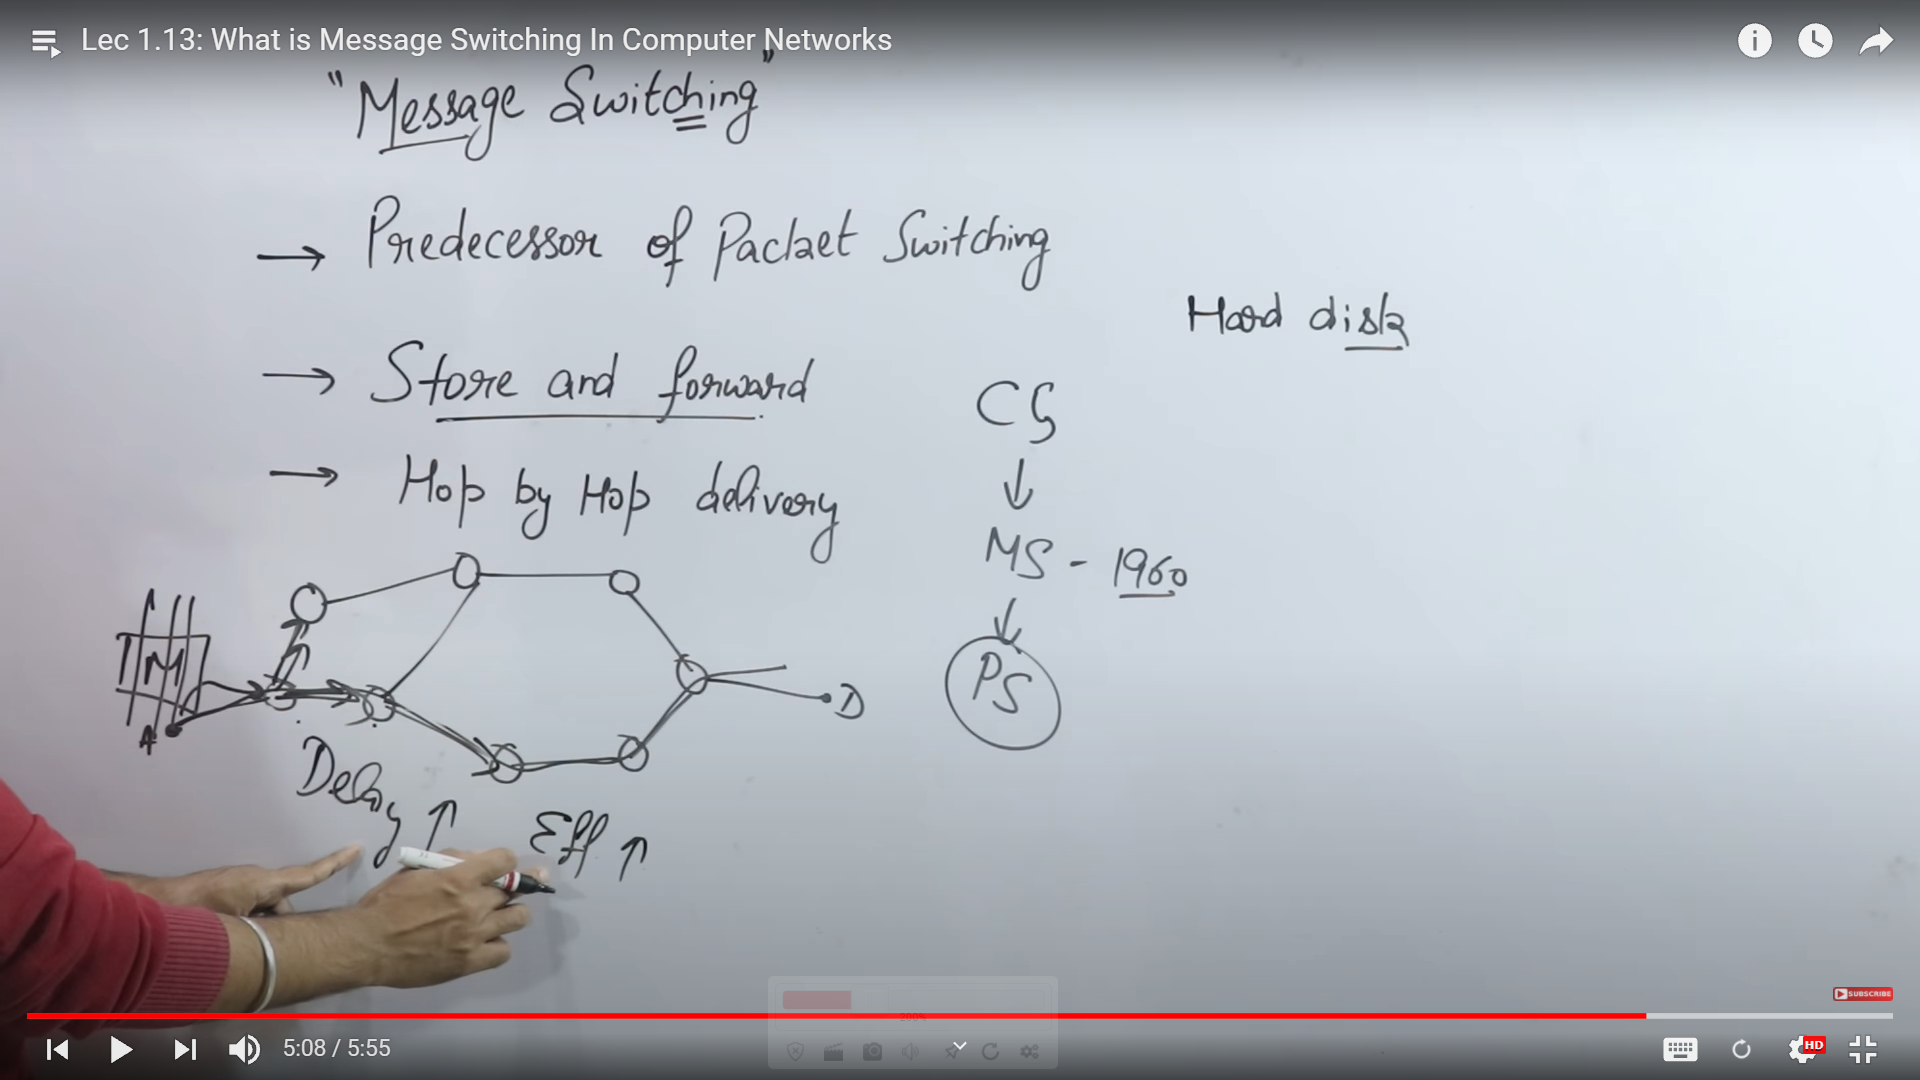 Lec 1.13: What is Message Switching In Computer Networks
"Message Switching"
→ Predecessor of Packet Switching
Hard disk
→ Store and forward
CS
↓
→ Hop by Hop delivery
MS - 1960
↓
PS
M
A
D
Delay ↑
Eff ↑
SUBSCRIBE
5:08 / 5:55
HD